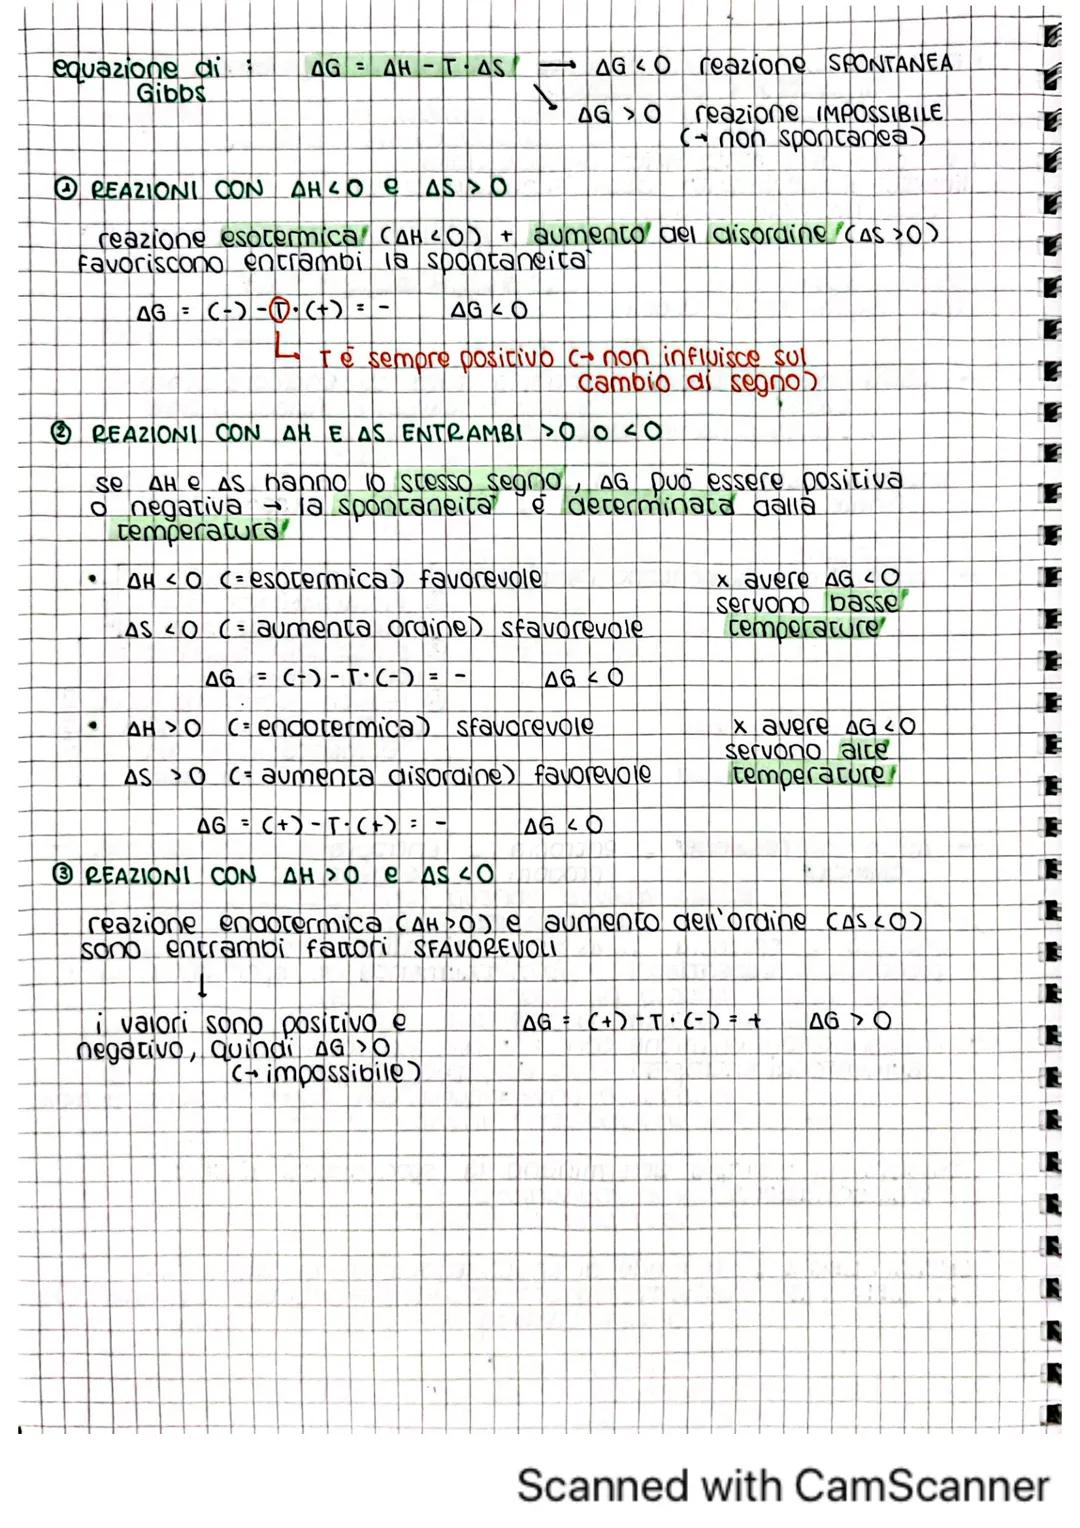 equazione di : ΔG = ΔH - T · ΔS → ΔG < 0 reazione SPONTANEA
Gibbs
↘ ΔG > 0 reazione IMPOSSIBILE
(→ non spontanea)
① REAZIONI CON ΔH < 0 e ΔS > 0
reazione esotermica (ΔH < 0) + aumento del disordine (ΔS > 0)
favoriscono entrambi la spontaneità
ΔG = (-) - T · (+) = - ΔG < 0
T è sempre positivo (→ non influisce sul
cambio di segno)
② REAZIONI CON ΔH E ΔS ENTRAMBI > 0 O < 0
se ΔH e ΔS hanno lo stesso segno, ΔG può essere positiva
o negativa → la spontaneità è determinata dalla
temperatura
• ΔH < 0 (= esotermica) favorevole x avere ΔG < 0
servono basse
ΔS < 0 (= aumenta ordine) sfavorevole temperature
ΔG = (-) - T · (-) = - ΔG < 0
• ΔH > 0 (= endotermica) sfavorevole x avere ΔG < 0
servono alte
ΔS > 0 (= aumenta disordine) favorevole temperature
ΔG = (+) - T · (+) = - ΔG < 0
③ REAZIONI CON ΔH > 0 e ΔS < 0
reazione endotermica (ΔH > 0) e aumento dell'ordine (ΔS < 0)
sono entrambi fattori SFAVOREVOLI
↓
i valori sono positivo e ΔG = (+) - T · (-) = + ΔG > 0
negativo, quindi ΔG > 0
(→ impossibile)
Scanned with CamScanner